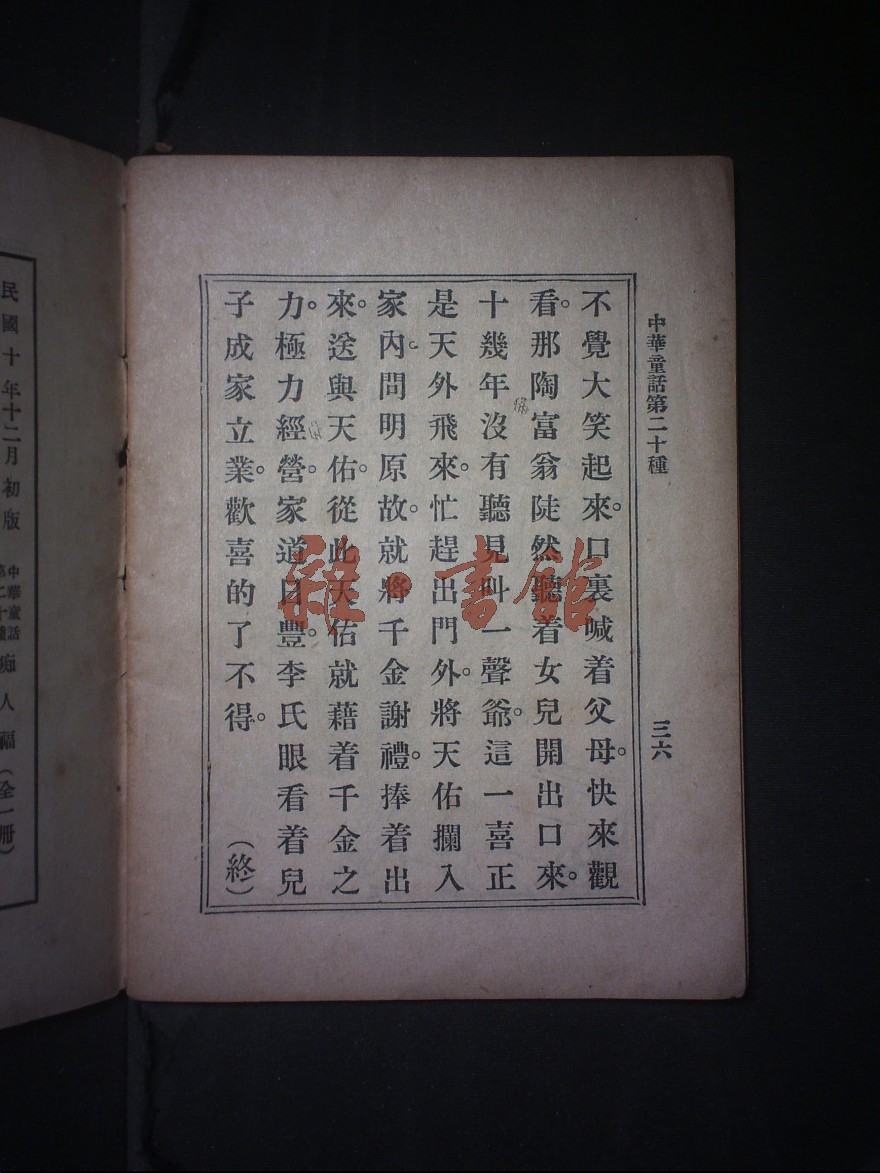 中華童話第二十種
三六
不覺大笑起來。口裏喊着父母。快來觀
看。那陶富翁陡然聽着女兒開出口來。
十幾年沒有聽見叫一聲爺。這一喜正
是天外飛來。忙趕出門外。將天佑攔入
家內。問明原故。就將千金謝禮。捧着出
來。送與天佑。從此天佑就藉着千金之
力。極力經營。家道日豐。李氏眼看着兒
子成家立業。歡喜的了不得。
（終）
雜·書館
民國十年十二月初版
中華童話
第二十種
痴人福（全一冊）